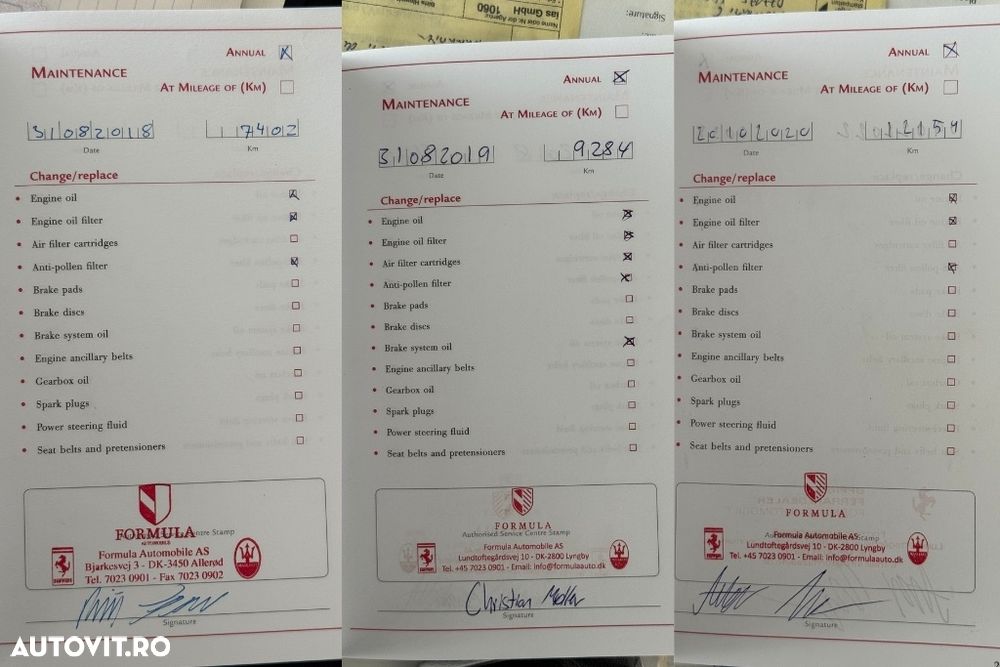 ias GmbH
1060
Signature:
ANNUAL
MAINTENANCE
AT MILEAGE OF (KM)
31082018
7402
Date
Km
Change/replace
Engine oil
Engine oil filter
Air filter cartridges
Anti-pollen filter
Brake pads
Brake discs
Brake system oil
Engine ancillary belts
Gearbox oil
Spark plugs
Power steering fluid
Seat belts and pretensioners
FORMULA
AUTOMOBILE
Centre Stamp
Formula Automobile AS
Bjarkesvej 3 - DK-3450 Allerød
Tel. 7023 0901 - Fax 7023 0902
Signature
ANNUAL
MAINTENANCE
AT MILEAGE OF (KM)
31082019
9284
Date
Km
Change/replace
Engine oil
Engine oil filter
Air filter cartridges
Anti-pollen filter
Brake pads
Brake discs
Brake system oil
Engine ancillary belts
Gearbox oil
Spark plugs
Power steering fluid
Seat belts and pretensioners
FORMULA
Authorised Service Centre Stamp
Formula Automobile AS
Lundtoftegårdsvej 10 - DK-2800 Lyngby
Tel. +45 7023 0901 - Email: info@formulaauto.dk
Christian
Signature
ANNUAL
MAINTENANCE
AT MILEAGE OF (KM)
20102020
12154
Date
Km
Change/replace
Engine oil
Engine oil filter
Air filter cartridges
Anti-pollen filter
Brake pads
Brake discs
Brake system oil
Engine ancillary belts
Gearbox oil
Spark plugs
Power steering fluid
Seat belts and pretensioners
FORMULA
Formula Automobile AS
Lundtoftegårdsvej 10 - DK-2800 Lyngby
Tel. +45 7023 0901 - Email: info@formulaauto.dk
Signature
AUTOVIT.RO